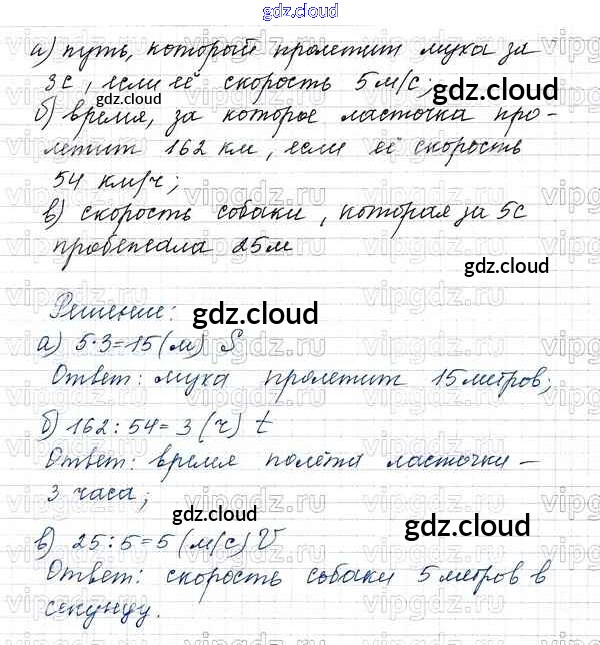 gdz.cloud
а) путь, который пролетит муха за
3с, если её скорость 5 м/с;
gdz.cloud
gdz.cloud
б) время, за которое ласточка про-
летит 162 км, если её скорость
54 км/ч;
в) скорость собаки, которая за 5с
пробежала 25м
gdz.cloud
Решение:
gdz.cloud
а) 5·3=15(м) S
Ответ: муха пролетит 15 метров;
б) 162:54=3(ч) t
Ответ: время полёта ласточки –
3 часа;
gdz.cloud
gdz.cloud
в) 25:5=5(м/с) V
Ответ: скорость собаки 5 метров в
секунду.